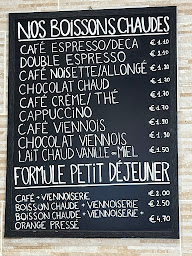 NOS BOISSONS CHAUDES
CAFÉ ESPRESSO/DECA €1.10
DOUBLE ESPRESSO
CAFÉ NOISETTE/ALLONGÉ €1.20
CHOCOLAT CHAUD
CAFÉ CRÈME/ THÉ €1.70
CAPPUCCINO €1.70
CAFÉ VIENNOIS
CHOCOLAT VIENNOIS €1.30
LAIT CHAUD VANILLE OU MIEL €1.50
FORMULE PETIT DÉJEUNER
CAFÉ + VIENNOISERIE €2.00
BOISSON CHAUDE + VIENNOISERIE €2.50
BOISSON CHAUDE + VIENNOISERIE +
ORANGE PRESSÉ €4.70